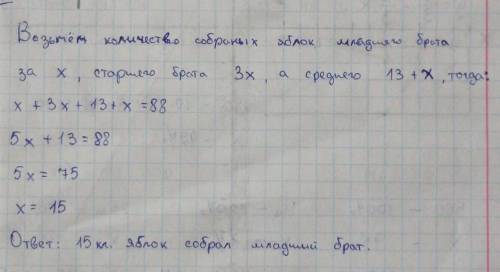 Возьмём количество собраных яблок младшего брата
за x, старшего брата 3x, а среднего 13 + x, тогда:
x + 3x + 13 + x = 88
5x + 13 = 88
5x = 75
x = 15
Ответ: 15 кг. яблок собрал младший брат.